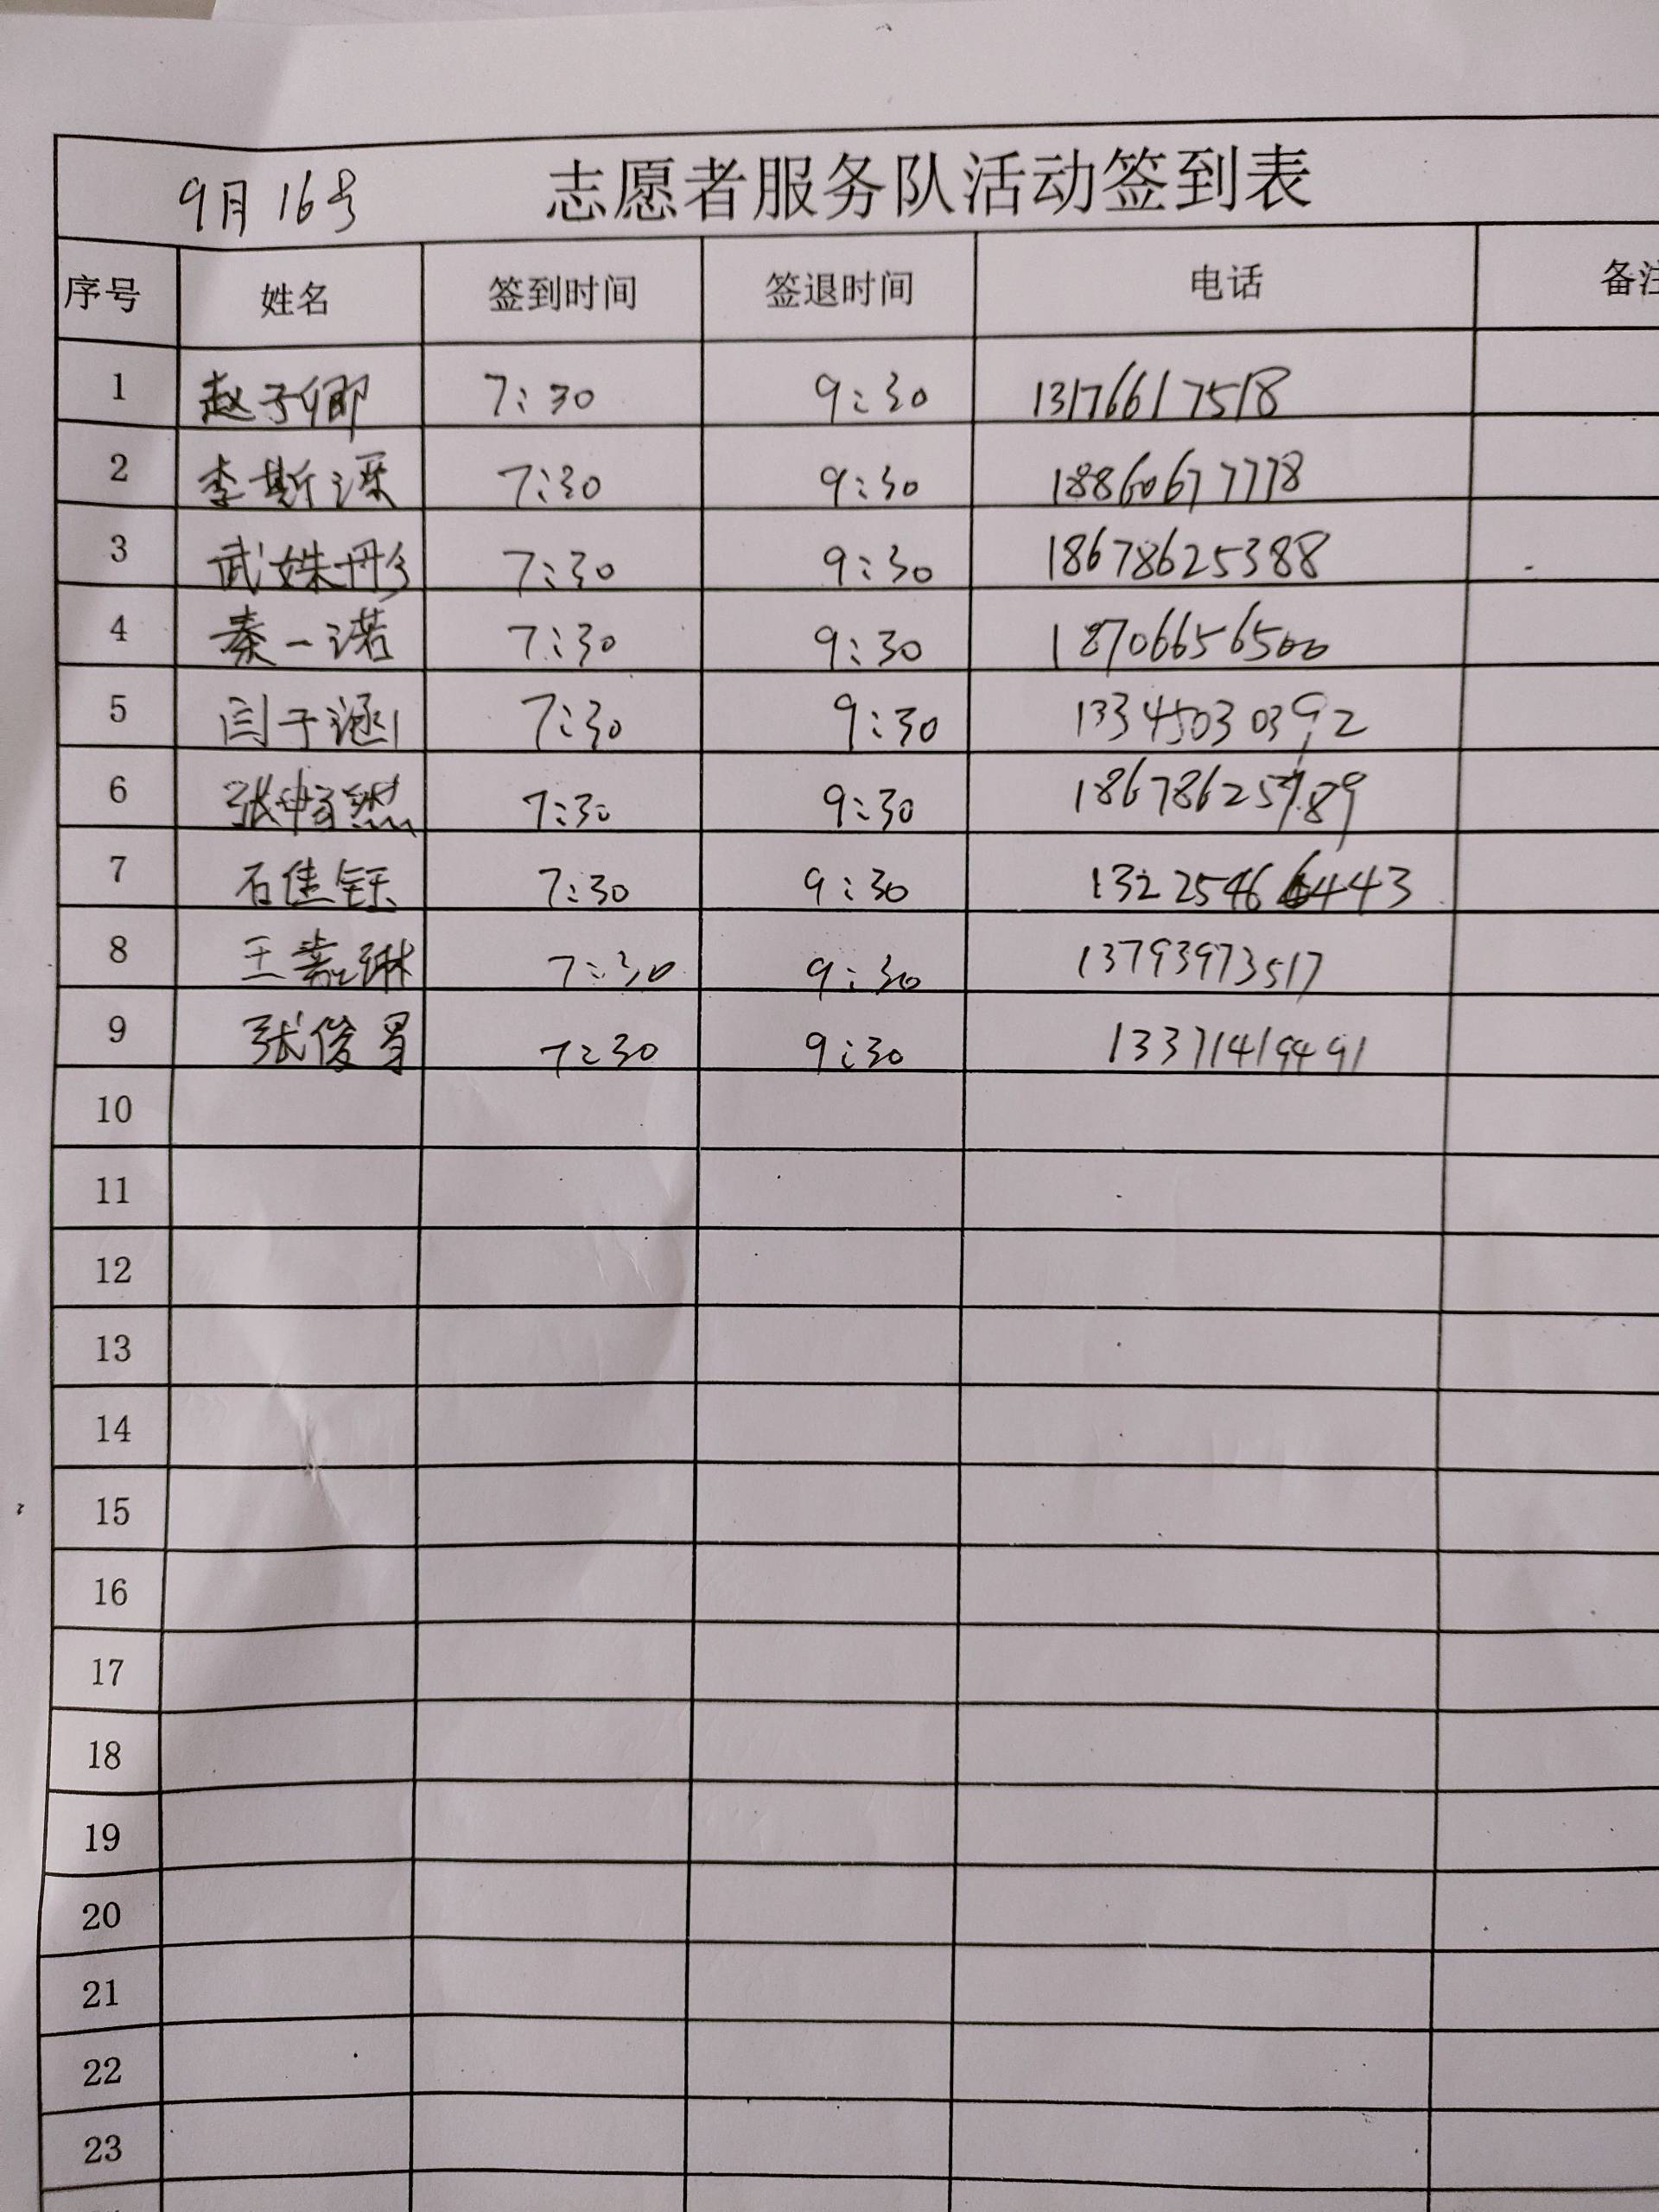 9月16号 志愿者服务队活动签到表
序号 姓名 签到时间 签退时间 电话 备注
1 赵子卿 7:30 9:30 13176617518
2 李斯 7:30 9:30 18860677778
3 武姝彤 7:30 9:30 18678625388
4 秦一诺 7:30 9:30 18706656500
5 闫子涵 7:30 9:30 13345030392
6 张畅然 7:30 9:30
7 石佳钰 7:30 9:30 13225466443
8 王嘉琳 7:30 9:30 13793973517
9 张俊 7:30 9:30 13371419491
10
11
12
13
14
15
16
17
18
19
20
21
22
23